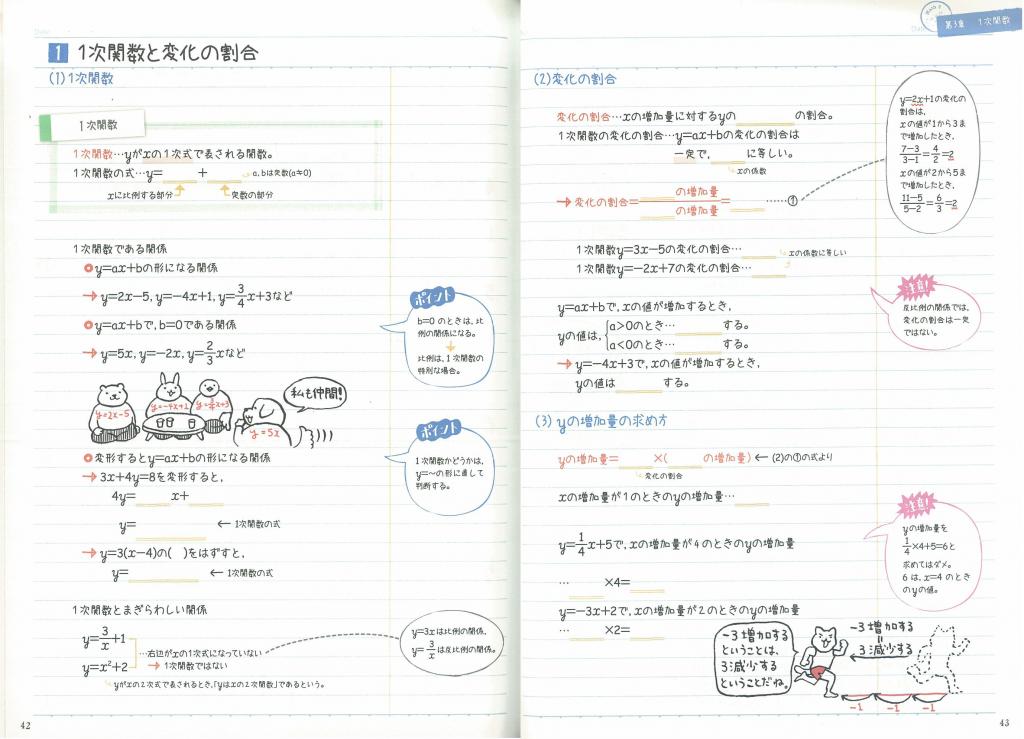 1 1次関数と変化の割合
(1)1次関数
1次関数
1次関数…yがxの1次式で表される関数。
1次関数の式…y= + a, bは定数(a≠0)
xに比例する部分 定数の部分
1次関数である関係
y=ax+bの形になる関係
→y=2x-5, y=-4x+1, y=3/4x+3など
y=ax+bで, b=0である関係
→y=5x, y=-2x, y=2/3xなど
ポイント
b=0 のときは, 比
例の関係になる。
比例は, 1次関数の
特別な場合。
y=2x-5
y=-4x+1
y=3/4x+3
y=5x
私も仲間!
変形するとy=ax+bの形になる関係
→3x+4y=8を変形すると,
4y= x+
y= ← 1次関数の式
→y=3(x-4)の( )をはずすと,
y= ← 1次関数の式
ポイント
1次関数かどうかは,
y=〜の形に直して
判断する。
1次関数とまぎらわしい関係
y=3/x+1
y=x²+2
…右辺がxの1次式になっていない
→ 1次関数ではない
yがxの2次式で表されるとき,「yはxの2次関数」であるという。
y=3xは比例の関係,
y=3/xは反比例の関係。
42
第3章 1次関数
(2)変化の割合
変化の割合…xの増加量に対するyの の割合。
1次関数の変化の割合…y=ax+bの変化の割合は
一定で, に等しい。
xの係数
→変化の割合= の増加量/ の増加量= ……①
1次関数y=3x-5の変化の割合… xの係数に等しい
1次関数y=-2x+7の変化の割合…
y=2x+1の変化の
割合は,
xの値が1から3ま
で増加したとき,
7-3/3-1=4/2=2
xの値が2から5ま
で増加したとき,
11-5/5-2=6/3=2
y=ax+bで, xの値が増加するとき,
yの値は, {a>0のとき… する。
a<0のとき… する。
→y=-4x+3で, xの値が増加するとき,
yの値は する。
注意!
反比例の関係では,
変化の割合は一定
ではない。
(3) yの増加量の求め方
yの増加量= ×( の増加量) ← (2)の①の式より
変化の割合
xの増加量が1のときのyの増加量…
y=1/4x+5で, xの増加量が4のときのyの増加量
… ×4=
y=-3x+2で, xの増加量が2のときのyの増加量
… ×2=
注意!
yの増加量を
1/4×4+5=6と
求めてはダメ。
6は, x=4のとき
のyの値。
-3増加する
ということは,
3減少する
ということだね。
-3増加する
=
3減少する
-1 -1 -1
43